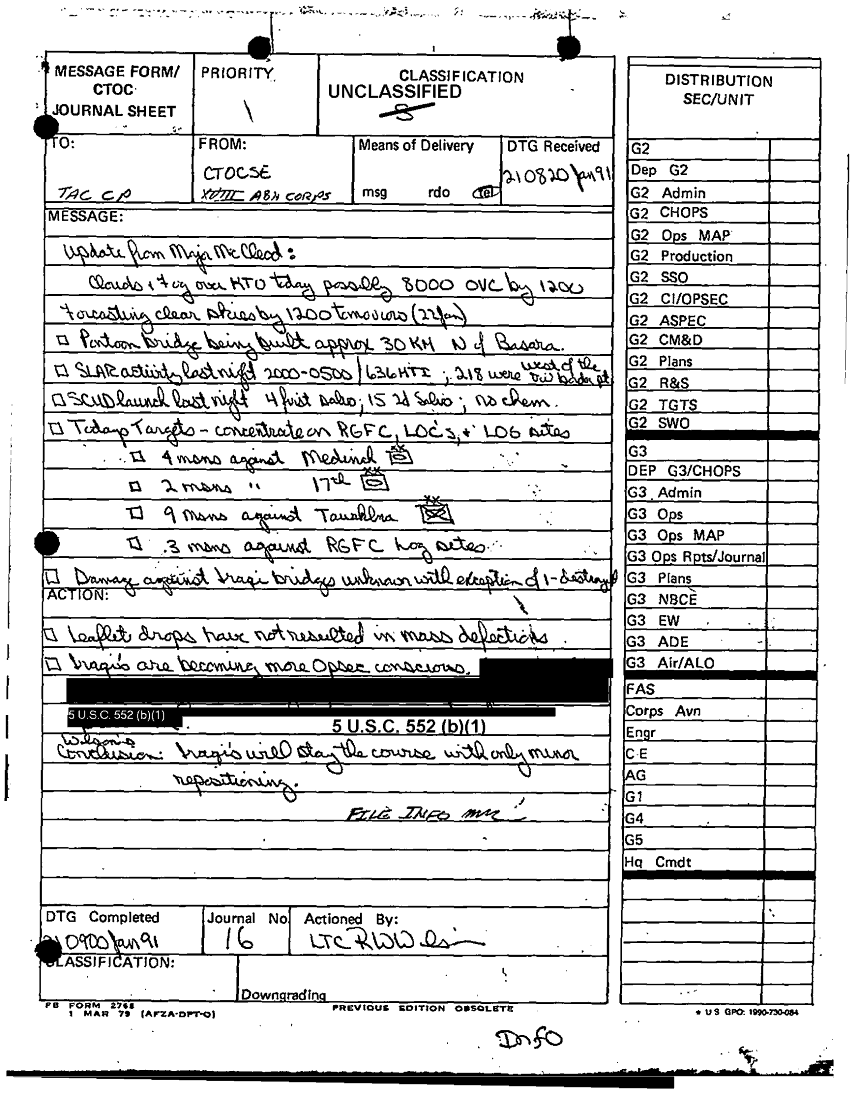 MESSAGE FORM/
CTOC
JOURNAL SHEET
PRIORITY
CLASSIFICATION
UNCLASSIFIED
S
TO:
TAC CP
FROM:
CTOCSE
XVIII ABN CORPS
Means of Delivery
msg rdo tel
DTG Received
210820 Jan 91
MESSAGE:
Update from Major McCleod:
Clouds & Fog over KTO today possibly 8000 OVC by 1200
Forcasting clear skies by 1200 tomorrow (22 Jan)
□ Pontoon bridge being built approx 30 KM N of Basara.
□ SLAR activity last night 2000-0500 / 636 MTI ; 218 were west of the
□ SCUD launch last night 4 first salvo; 15 2d Salvo; no chem.
□ Todays Targets - concentrate on RGFC, LOC's, + LOG sites
□ 4 msns against Medinah
□ 2 msns " 17th
□ 9 msns against
□ 3 msns against RGFC Log sites
□ Damage against Iraqi bridges unknown with exception of 1-destroyed
ACTION:
□ Leaflet drops have not resulted in mass defections
□ Iraqi's are becoming more Opsec conscious.
5 U.S.C. 552 (b)(1)
5 U.S.C. 552 (b)(1)
Wilson's
Conclusion: Iraqi's will stay the course with only minor
repositioning.
FILE INFO
DTG Completed
210900 Jan 91
Journal No
16
Actioned By:
LTC RW Wilson
CLASSIFICATION:
Downgrading
FB FORM 2768
1 MAR 79 (AFZA-DPT-O)
PREVIOUS EDITION OBSOLETE
DISTRIBUTION
SEC/UNIT
G2
Dep G2
G2 Admin
G2 CHOPS
G2 Ops MAP
G2 Production
G2 SSO
G2 CI/OPSEC
G2 ASPEC
G2 CM&D
G2 Plans
G2 R&S
G2 TGTS
G2 SWO
G3
DEP G3/CHOPS
G3 Admin
G3 Ops
G3 Ops MAP
G3 Ops Rpts/Journal
G3 Plans
G3 NBCE
G3 EW
G3 ADE
G3 Air/ALO
FAS
Corps Avn
Engr
CE
AG
G1
G4
G5
Hq Cmdt
* U S GPO: 1990-730-084